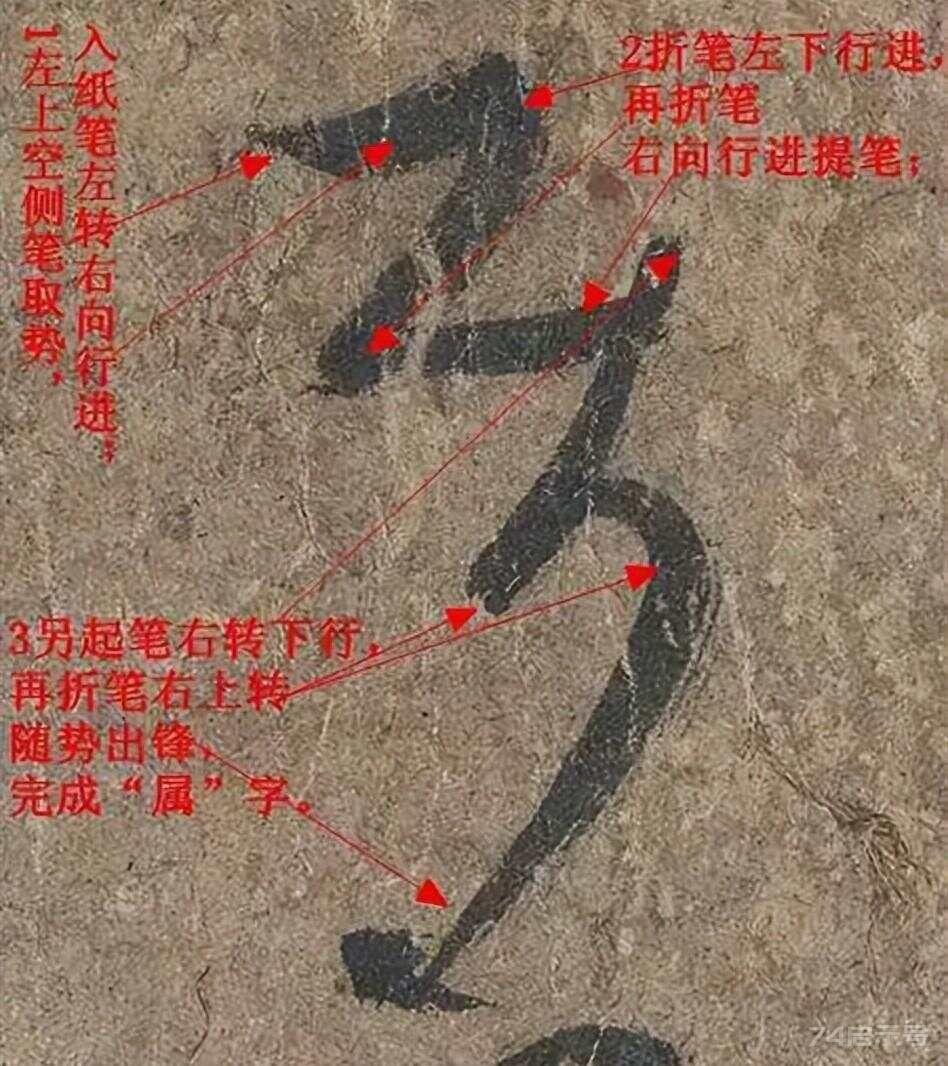 1左上空侧笔取势，
入纸笔左转右向行进；
2折笔左下行进，
再折笔
右向行进提笔；
属
3另起笔右转下行，
再折笔右上转
随势出锋，
完成“属”字。
74启示号